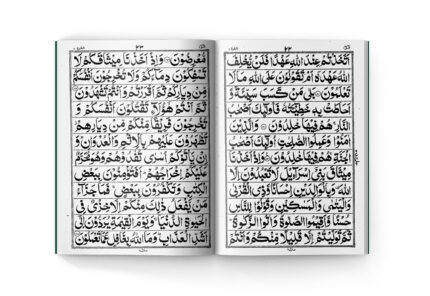 ٢٢
اتَّخَذْتُمْ عِنْدَ اللّٰهِ عَهْدًا فَلَنْ يُّخْلِفَ
اللّٰهُ عَهْدَهٗٓ اَمْ تَقُوْلُوْنَ عَلَى اللّٰهِ مَا لَا
تَعْلَمُوْنَ بَلٰى مَنْ كَسَبَ سَيِّئَةً وَّ
اَحَاطَتْ بِهٖ خَطِيْٓئَتُهٗ فَاُولٰٓئِكَ اَصْحٰبُ
النَّارِ هُمْ فِيْهَا خٰلِدُوْنَ وَالَّذِيْنَ
اٰمَنُوْا وَعَمِلُوا الصّٰلِحٰتِ اُولٰٓئِكَ اَصْحٰبُ
الْجَنَّةِ هُمْ فِيْهَا خٰلِدُوْنَ وَاِذْ اَخَذْنَا
مِيْثَاقَ بَنِيْٓ اِسْرَآءِيْلَ لَا تَعْبُدُوْنَ اِلَّا
اللّٰهَ وَبِالْوَالِدَيْنِ اِحْسَانًا وَّذِي الْقُرْبٰى
وَالْيَتٰمٰى وَالْمَسٰكِيْنِ وَقُوْلُوْا لِلنَّاسِ
حُسْنًا وَّاَقِيْمُوا الصَّلٰوةَ وَاٰتُوا الزَّكٰوةَ
ثُمَّ تَوَلَّيْتُمْ اِلَّا قَلِيْلًا مِّنْكُمْ وَاَنْتُمْ
٢٣
مُّعْرِضُوْنَ وَاِذْ اَخَذْنَا مِيْثَاقَكُمْ لَا
تَسْفِكُوْنَ دِمَآءَكُمْ وَلَا تُخْرِجُوْنَ اَنْفُسَكُمْ
مِّنْ دِيَارِكُمْ ثُمَّ اَقْرَرْتُمْ وَاَنْتُمْ تَشْهَدُوْنَ
ثُمَّ اَنْتُمْ هٰٓؤُلَآءِ تَقْتُلُوْنَ اَنْفُسَكُمْ وَ
تُخْرِجُوْنَ فَرِيْقًا مِّنْكُمْ مِّنْ دِيَارِهِمْ
تَظٰهَرُوْنَ عَلَيْهِمْ بِالْاِثْمِ وَالْعُدْوَانِ وَ
اِنْ يَّاْتُوْكُمْ اُسٰرٰى تُفٰدُوْهُمْ وَهُوَ مُحَرَّمٌ
عَلَيْكُمْ اِخْرَاجُهُمْ اَفَتُؤْمِنُوْنَ بِبَعْضِ
الْكِتٰبِ وَتَكْفُرُوْنَ بِبَعْضٍ فَمَا جَزَآءُ
مَنْ يَّفْعَلُ ذٰلِكَ مِنْكُمْ اِلَّا خِزْيٌ فِي
الْحَيٰوةِ الدُّنْيَا وَيَوْمَ الْقِيٰمَةِ يُرَدُّوْنَ اِلٰٓى
اَشَدِّ الْعَذَابِ وَمَا اللّٰهُ بِغَافِلٍ عَمَّا تَعْمَلُوْنَ